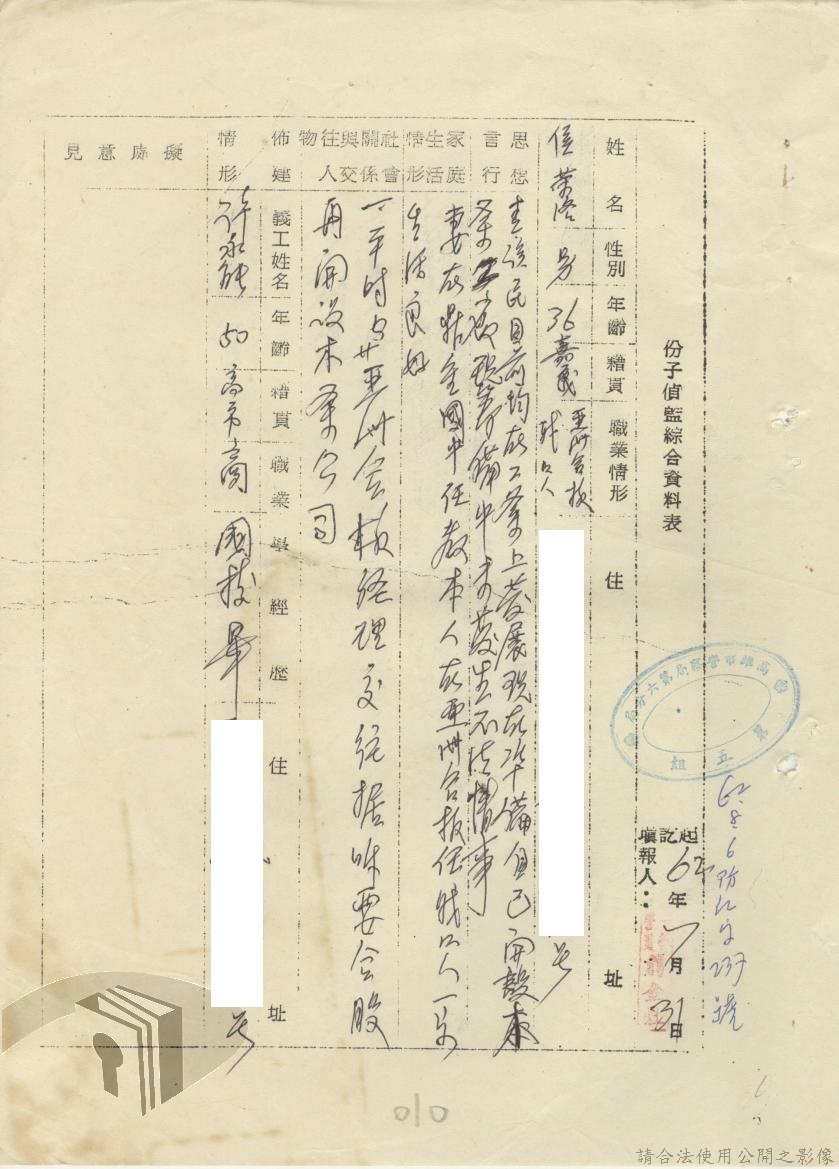 份子偵監綜合資料表
高雄市警察局第六分局
第五組
62.8.6
237號
起訖 62年7月31日
填報人：
姓名 性別 年齡 籍貫 職業情形 住址
侯榮 男 36 嘉義 亞洲合板 號
思想言行
查該民目前均在工業上發展現在準備自己開設木
業公司現籌備中未發生不法情事
家庭生活情形
妻在 國中任教本人在亞洲合板任職 人一家
生活良好
社會關係與交往人物
一、平時與亞洲合板經理交往據 要合股
再開設木業公司
佈建情形
義工姓名 年齡 籍貫 職業 學經歷 住址
許永能 50 高市 商 國校畢 號
擬處意見
010
請合法使用公開之影像